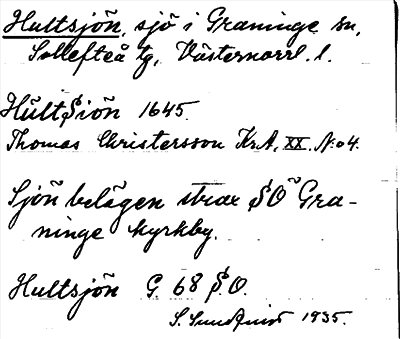 Hultsjön, sjö i Graninge sn,
Sollefteå tg, Västernorrl. l.
Hultsiön 1645.
Thomas Christersson Kr.A, XX. N:o 4.
Sjön belägen strax S.O. Gra-
ninge kyrkby.
Hultsjön G 68 S.O.
S. Sundqvist 1935.